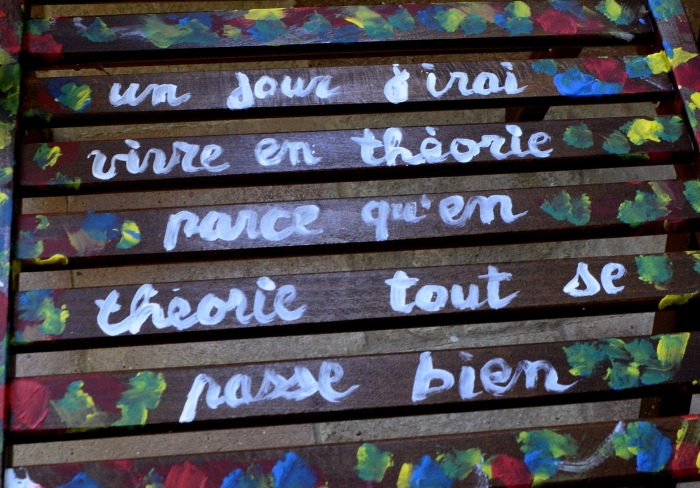 un jour j'irai
vivre en théorie
parce qu'en
théorie tout se
passe bien